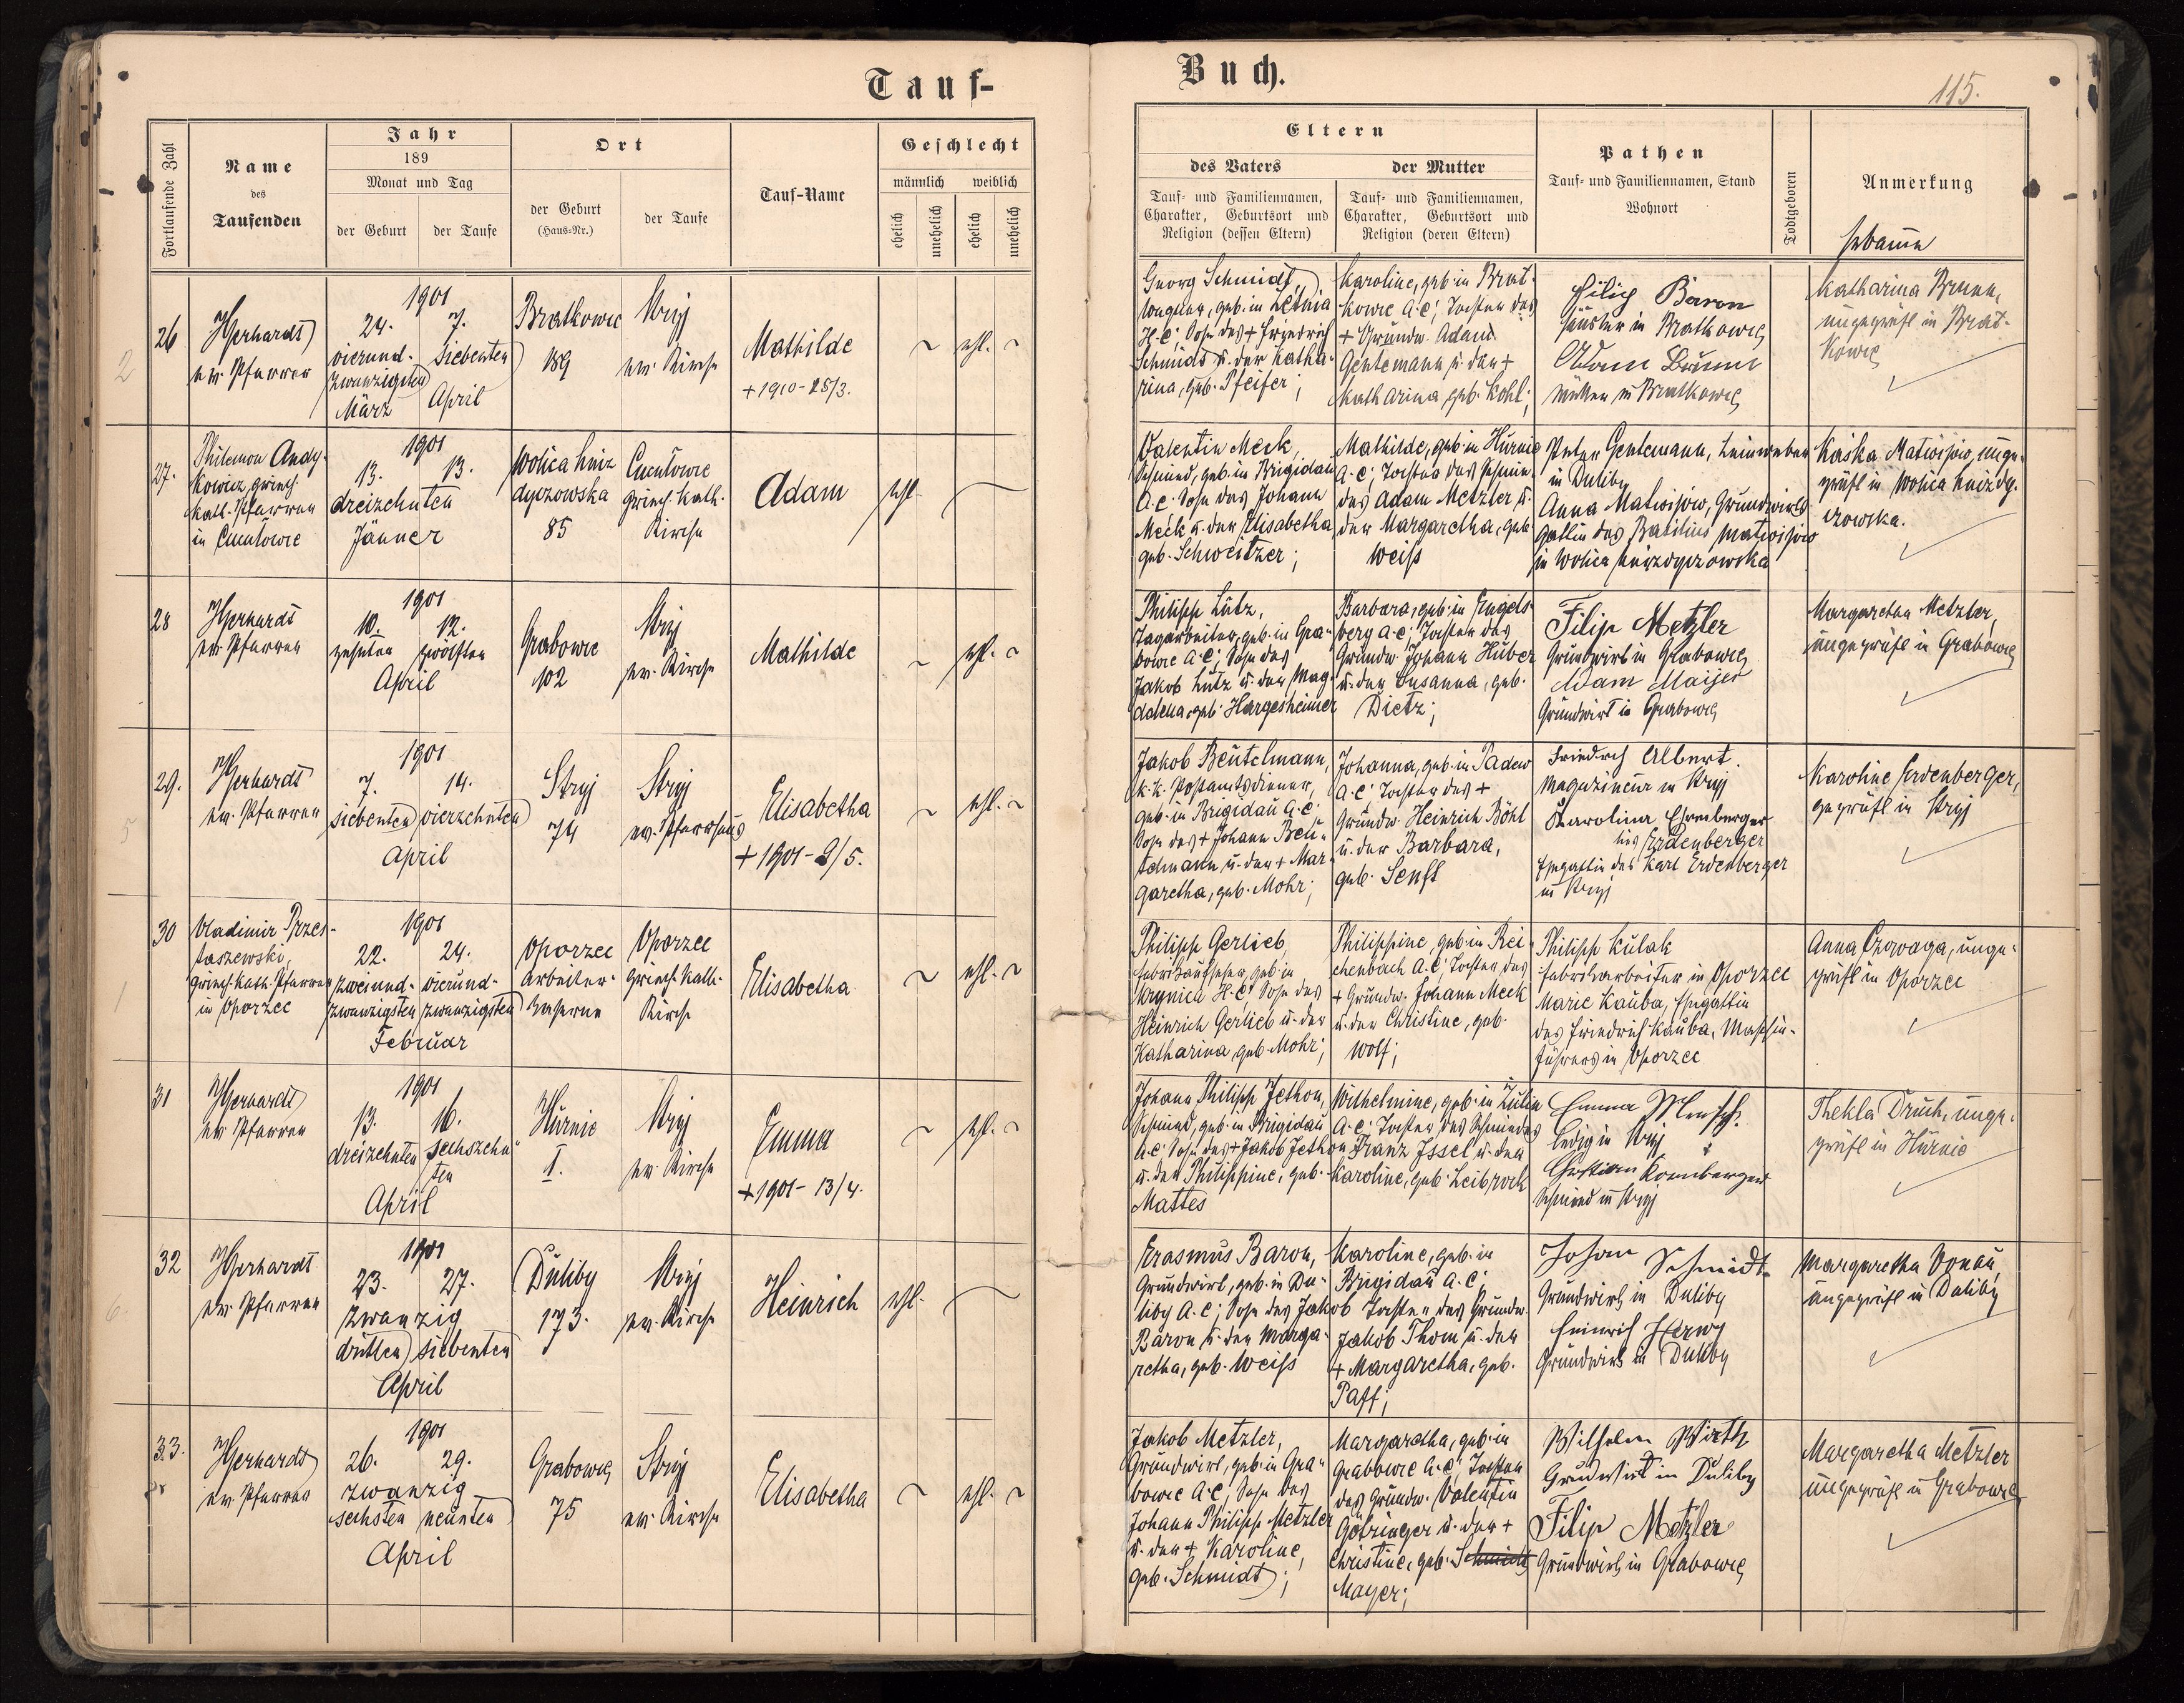 Tauf-
Buch.
115.
Fortlaufende Zahl
Name
des
Taufenden
Jahr
189
Monat und Tag
der Geburt
der Taufe
Ort
der Geburt
(Haus-Nr.)
der Taufe
Tauf-Name
Geschlecht
männlich
weiblich
ehelich
unehelich
ehelich
unehelich
Eltern
des Vaters
der Mutter
Tauf- und Familiennamen,
Charakter, Geburtsort und
Religion (dessen Eltern)
Tauf- und Familiennamen,
Charakter, Geburtsort und
Religion (deren Eltern)
Pathen
Tauf- und Familiennamen, Stand
Wohnort
Todtgeboren
Anmerkung
Hebamme
26
ev. Pfarrer
1901
24.
7.
vierund-
siebenten
zwanzigsten
März
April
Bratkowce
189
Stryj
ev. Kirche
Mathilde
+ 1910 - 25/3.
ehl.
Georg Schmidt,
Wagner, geb. in Letnia
H.C; Sohn des + Friedrich
Schmidt u. der Katha-
rina, geb. Pfeifer;
Karoline, geb. in Brat-
kowce A.C; Tochter des
+ Grundw. Adam
Gentemann u. der +
Katharina geb. Kohl;
Filip Baron
in Bratkowce
Adam Brunn
in Bratkowce
Katharina Brunn,
ungeprüft in Brat-
kowce
27.
Philemon Andy-
kowicz, griech.
kath. Pfarrer
in
1901
13.
13.
dreizehnten
Jänner
Wolica hniz
dyczowska
85
griech. kath.
Kirche
Adam
ehl.
Valentin Meck,
Schmied, geb. in Brigidau
A.C. Sohn des Johann
Meck u. der Elisabetha,
geb. Schweitzer;
Mathilde, geb. in Hurnie
A.C; Tochter des Schmie-
des Adam Metzler u.
der Margaretha, geb.
Weiss
Peter Gentemann, Leinweber
in Duliby
Anna Matwijow, Grundwirts
gattin des Basilius Matwijow
in Wolica hnizdyczowska
Kaska Matwijow, unge-
prüft in Wolica hnizdy-
czowska.
28
ev. Pfarrer
1901
10.
12.
zehnten
zwölften
April
Grabowce
102
Stryj
ev. Kirche
Mathilde
ehl.
Philipp Lutz,
Tagarbeiter, geb. in Gra-
bowce A.C; Sohn des
Jakob Lutz u. der Mag-
dalena, geb. Hargesheimer
Barbara, geb. in Engels-
berg A.C; Tochter des
Grundw. Johann Huber
u. der Susanna, geb.
Dietz;
Filip Metzler
Grundwirt in Grabowce
Adam Maijer
Grundwirt in Grabowce
Margaretha Metzler,
ungeprüft in Grabowce
29.
ev. Pfarrer
1901
7.
14.
siebenten
vierzehnten
April
Stryj
74
Stryj
ev. Pfarrhaus
Elisabetha
+ 1901 - 2/5.
ehl.
Jakob Beutelmann,
k.k. Postamtsdiener,
geb. in Brigidau A.C.
Sohn des + Johann Beu-
telmann u. der + Mar-
garetha, geb. Mohr;
Johanna, geb. in Padew
A.C. Tochter des +
Grundw. Heinrich Böhl
u. der Barbara,
geb. Senft
Friedrich Albert.
Magazineur in Stryj
Karolina
Erdenberger
Ehegattin des Karl Erdenberger
in Stryj
Karoline Erdenberger,
geprüft in Stryj
30
Vladimir Przes-
taszewski,
griech. kath. Pfarrer
in Oporzec
1901
22.
24.
zweiund-
vierund-
zwanzigsten
zwanzigsten
Februar
Oporzec
Arbeiter-
Kaserne
Oporzec
griech. kath.
Kirche
Elisabetha
ehl.
Philipp Gerlieb
geb. in
Krynica H.C. Sohn des
Heinrich Gerlieb u. der
Katharina, geb. Mohr;
Philippine, geb. in Rei-
chenbach A.C; Tochter des
+ Grundw. Johann Meck
u. der Christine, geb.
Wolf;
Philipp Kulak
Fabriksarbeiter in Oporzec
Marie Kauba, Ehegattin
des Friedrich Kauba, Maschin-
führers in Oporzec
Anna Czowaga, unge-
prüft in Oporzec
31
ev. Pfarrer
1901
13.
16.
dreizehnten
sechszehn-
ten
April
Hurnie
I.
Stryj
ev. Kirche
Emma
+ 1901 - 13/4.
ehl.
Johann Philipp Jethon,
Schmied, geb. in Brigidau
A.C. Sohn des + Jakob Jethon
u. der Philippine, geb.
Mattes
Wilhelmine, geb. in Zulin
A.C. Tochter des Schmiedes
Franz Issel u. der
Karoline, geb. Leibrock
Emma
ledig in Stryj
Christian Kornberger
Schmied in Stryj
Thekla Druch, unge-
prüft in Hurnie
32
ev. Pfarrer
1901
23.
27.
zwanzig
dritten
siebenten
April
Duliby
173.
Stryj
ev. Kirche
Heinrich
ehl.
Erasmus Baron,
Grundwirt, geb. in Du-
liby A.C; Sohn des Jakob
Baron u. der Marga-
retha, geb. Weiss
Karoline, geb. in
Brigidau A.C;
Tochter des Grundw.
Jakob Thom u. der
+ Margaretha, geb.
Paff;
Johan Schmidt
Grundwirt in Duliby
Heinrich Herwy
Grundwirt in Duliby
Margaretha Donau,
ungeprüft in Duliby
33.
ev. Pfarrer
1901
26.
29.
zwanzig
sechsten
neunten
April
Grabowce
75
Stryj
ev. Kirche
Elisabetha
ehl.
Jakob Metzler,
Grundwirt, geb. in Gra-
bowce A.C; Sohn des
Johann Philipp Metzler
u. der + Karoline,
geb. Schmidt;
Margaretha, geb. in
Grabowce A.C; Tochter
des Grundw. Valentin
Götzinger u. der +
Christine, geb. Schmidt
Mayer;
Wilhelm Wirth
Grundwirt in Duliby
Filip Metzler
Grundwirt in Grabowce
Margaretha Metzler
ungeprüft in Grabowce